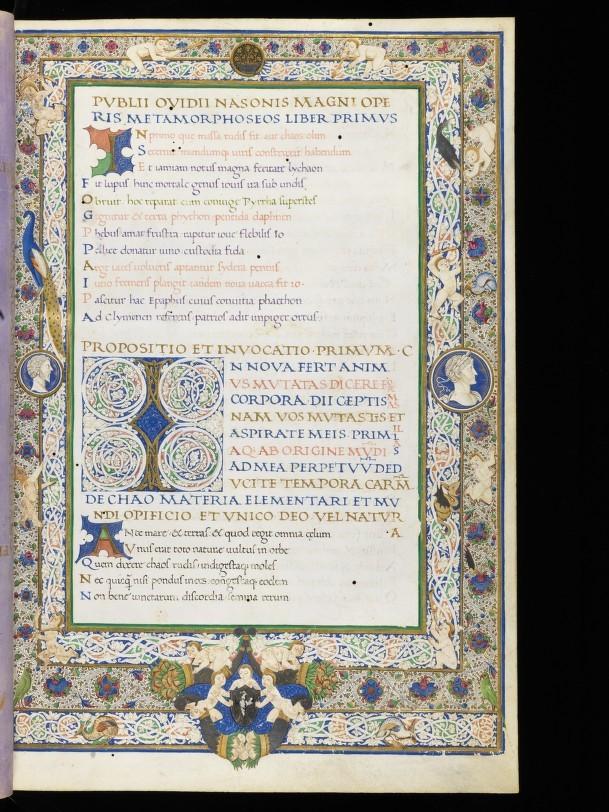 PVBLII OVIDII NASONIS MAGNI OPE
RIS METAMORPHOSEOS LIBER PRIMVS
IN primo que massa rudis fit aut chaos olim
Secernit mundumque viris construxit habendum
Et iam iam notus magna feritate lychaon
Fit lupus hinc mortale genus iouis ira sub undis
Obruit hoc reparat cum coniuge Pyrrha superstes
Gignitur & terra phython peneida daphnen
Phebus amat frustra rapitur ioue flebilis Io
Pellice donatur iuno custodia fida
Arge iaces volucris aptantur sydera pennis
Iuno fremens plangit tandem noua uacca fit io
Pascitur hac Epaphus cuius conuitia phaethon
Ad Clymenen referens patrios adit impiger ortus
PROPOSITIO ET INVOCATIO PRIMVM C
IN NOVA FERT ANIM
VS MVTATAS DICERE F
CORPORA DII CEPTIS
NAM VOS MVTASTIS ET
ASPIRATE MEIS PRIM
AQ AB ORIGINE MVDI
AD MEA PERPETVV DED
VCITE TEMPORA CARM
DE CHAO MATERIA ELEMENTARI ET MV
NDI OPIFICIO ET VNICO DEO VEL NATVR
ANte mare & terras & quod tegit omnia celum A
Vnus erat toto nature uultus in orbe
Quem dixere chaos rudis indigestaq moles
Nec quicq nisi pondus iners congestaq eodem
Non bene iunctarum discordia semina rerum